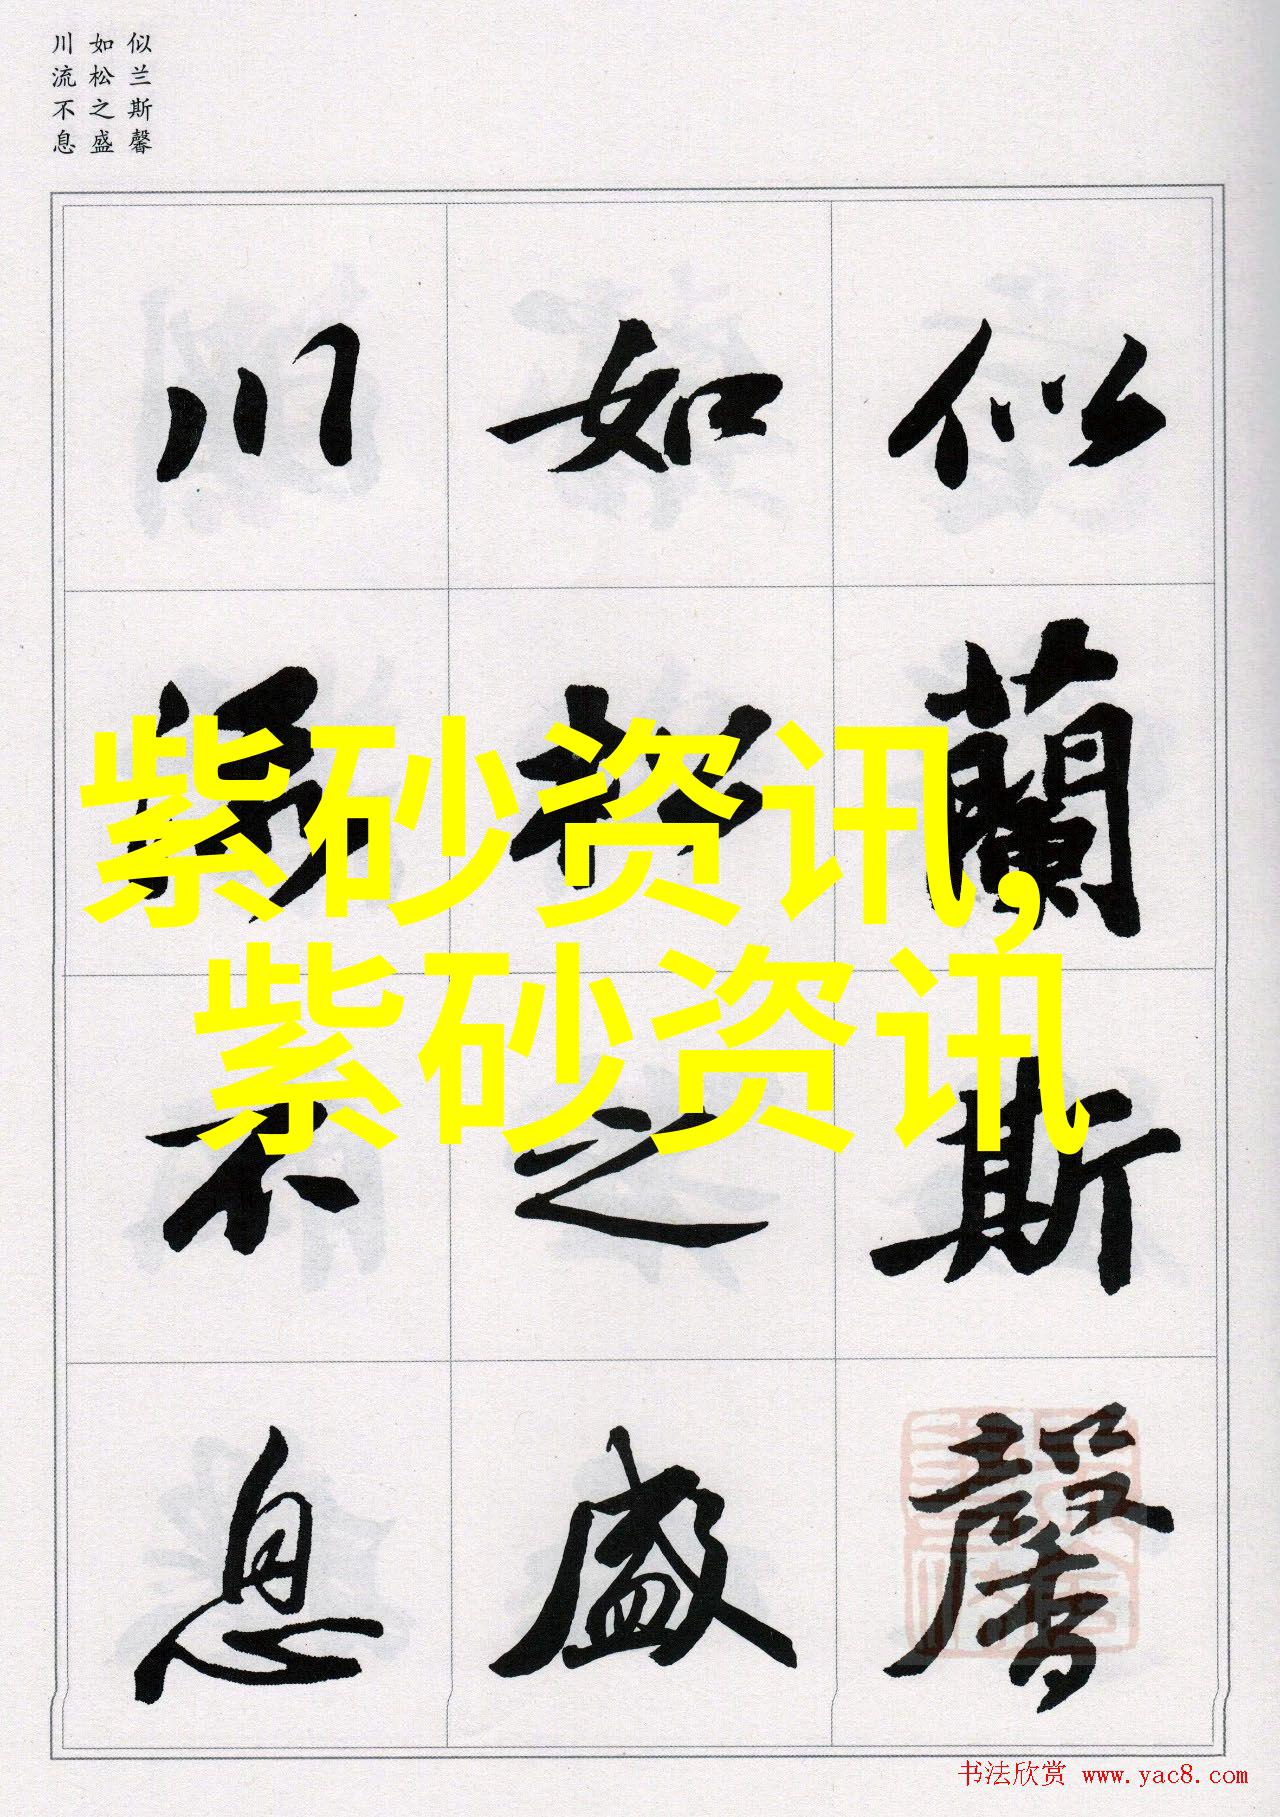 似兰斯馨
如松之盛
川流不息
似蘭斯馨
如松之盛
川流不息
紫砂资讯,
紫砂资讯
书法欣赏 www.yac8.com